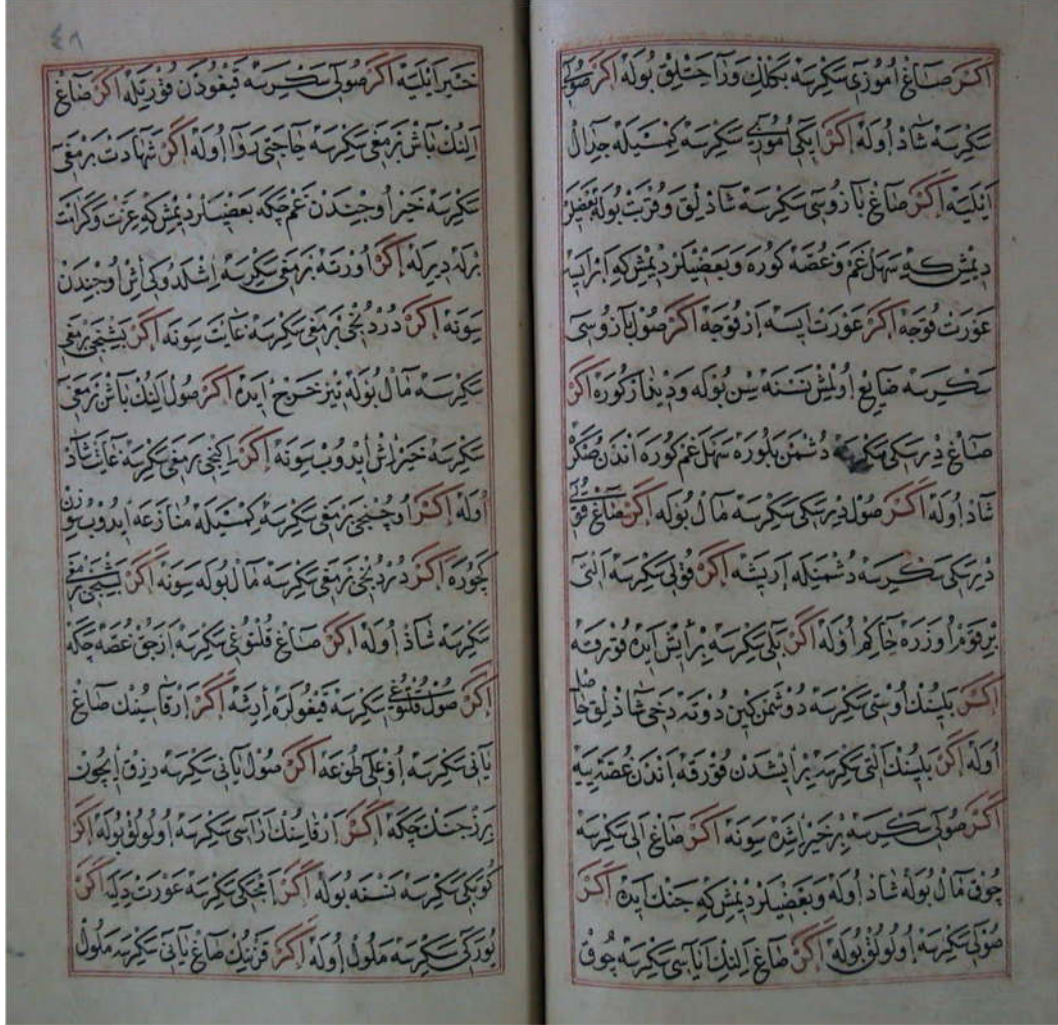 اَكَرْ صَاغْ اُمُوزِى سَكِرسَه بَكْلِكْ وَرَاحَتْلِقْ بُولَه اَكَرْ صُولِى
سَكِرسَه شَاذْ اُولَه اَكَرْ اِيكِى اُمُوزِى سَكِرسَه كِمْسَيلَه جِدَالْ
اَيْلَيَه اَكَرْ صَاغْ بَازُوسِى سَكِرسَه شَاذْلِقْ وَقُرْبَتْ بُولَه بَعْضِيلَرْ
دِيمِشْ كِه سَهِلْ غَمْ وَغُصَّه كُورَه وَبَعْضِيلَرْ دِيمِشْ كِه اَرْ اِيسَه
عَوْرَتْ قُوجَه اَكَرْ عَوْرَتْ اِيسَه اَرْ قُوجَه اَكَرْ صُولْ بَازُوسِى
سَكِرسَه ضَايِعْ اُولْمِشْ نَسْنَه سِنْ بُولَه وَدِيدَارْ كُورَه اَكَرْ
صَاغْ دِرسَكِى سَكِرسَه دُشْمَنْ بُلُورَه سَهِلْ غَمْ كُورَه اَنْدَنْ صُكْرَ
شَاذْ اُولَه اَكَرْ صُولْ دِرسَكِى سَكِرسَه مَالْ بُولَه اَكَرْ صَاغْ قُولِى
دِرسَكِى سَكِرسَه دُشْمَنْلَه اِرِيشَه اَكَرْ قُولِى سَكِرسَه اَلْتِى
بِرْ قَوْمْ اُوزَرَه حَاكِمْ اُولَه اَكَرْ بِلِى سَكِرسَه بِرْ اِيشْ اِيدَه قُورْقَه
اَكَرْ بِلِينُكْ اُوسْتِى سَكِرسَه دُوشْمَنْ كِينْ دُوتَه دَخِى شَاذْلِقْ حَاصِلْ
اُولَه اَكَرْ بِلِينُكْ اَلْتِى سَكِرسَه بِرْ اِيشْدَنْ قُورْقَه اَنْدَنْ غُصَّه يِيَه
اَكَرْ صُولِى سَكِرسَه بِرْ خَيْرْ اِيشْدَه سِوِنَه اَكَرْ صَاغْ اَلِى سَكِرسَه
چُوقْ مَالْ بُولَه شَاذْ اُولَه وَبَعْضِيلَرْ دِيمِشْ كِه جَنْكْ اِيدَه اَكَرْ
صُولِى سَكِرسَه اُولُولُقْ بُولَه اَكَرْ صَاغْ اَلِنُكْ اَيَاسِى سَكِرسَه چُوقْ
٤٨
خَيْرْ اَيْلَيَه اَكَرْ صُولِى سَكِرسَه قَيْغُودَنْ قُورْتِلَه اَكَرْ صَاغْ
اَلِنُكْ بَاشْ بَرْمَغِى سَكِرسَه حَاجَتِى رَوَا اُولَه اَكَرْ شَهَادَتْ بَرْمَغِى
سَكِرسَه خَيْرْ اُوجِنْدَنْ غَمْ چَكَه بَعْضِيلَرْ دِيمِشْ كِه عِزَّتْ وَكَرَامَتْ
بِرْلَه دِيرِلَه اَكَرْ اُورْتَه بَرْمَغِى سَكِرسَه اِشْلَدُوكِى اِشْ اُوجِنْدَنْ
سِوِنَه اَكَرْ دُرْدُنْجِى بَرْمَغِى سَكِرسَه غَايَتْ سِوِنَه اَكَرْ بَشِنْجِى بَرْمَغِى
سَكِرسَه مَالْ بُولَه تِيزْ خَرْجْ اِيدَه اَكَرْ صُولْ اَلِنُكْ بَاشْ بَرْمَغِى
سَكِرسَه خَيْرْ اِشْ اِيدُوبْ سِوِنَه اَكَرْ اِكِنْجِى بَرْمَغِى سَكِرسَه غَايَتْ شَاذْ
اُولَه اَكَرْ اُوچُنْجِى بَرْمَغِى سَكِرسَه كِمْسَيلَه مُنَازَعَه اِيدُوبْ سُوزِنْ
كَچُورَه اَكَرْ دُرْدُنْجِى بَرْمَغِى سَكِرسَه مَالْ بُولَه سِوِنَه اَكَرْ بَشِنْجِى بَرْمَغِى
سَكِرسَه شَاذْ اُولَه اَكَرْ صَاغْ قُلْتُوغِى سَكِرسَه اَزْ جُقْ غُصَّه چَكَه
اَكَرْ صُولْ قُلْتُوغِى سَكِرسَه قَيْغُولَرَه اِرِيشَه اَكَرْ اَرْقَاسِنُكْ صَاغْ
يَانِى سَكِرسَه اُوغْلِى طُوغَه اَكَرْ صُولْ يَانِى سَكِرسَه رِزْقْ اِيچُونْ
بِرَزْ جَنْكْ چَكَه اَكَرْ اَرْقَاسِنُكْ اَرَاسِى سَكِرسَه اُولُولُقْ بُولَه اَكَرْ
كُوبَكِى سَكِرسَه نَسْنَه بُولَه اَكَرْ اِمْجِكِى سَكِرسَه عَوْرَتْ دِيلَه اَكَرْ
يُورَكِى سَكِرسَه مَلُولْ اُولَه اَكَرْ قَرْنِنُكْ صَاغْ يَانِى سَكِرسَه مَلُولْ